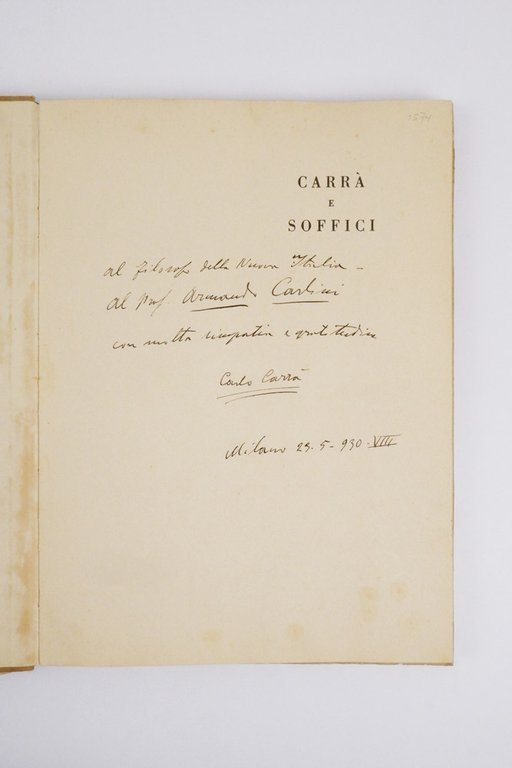 1574
CARRÀ
E
SOFFICI
al filosofo della Nuova Italia –
al Prof. Armando Carlini
con molta simpatia e gratitudine
Carlo Carrà
Milano 23.5-930-VIII